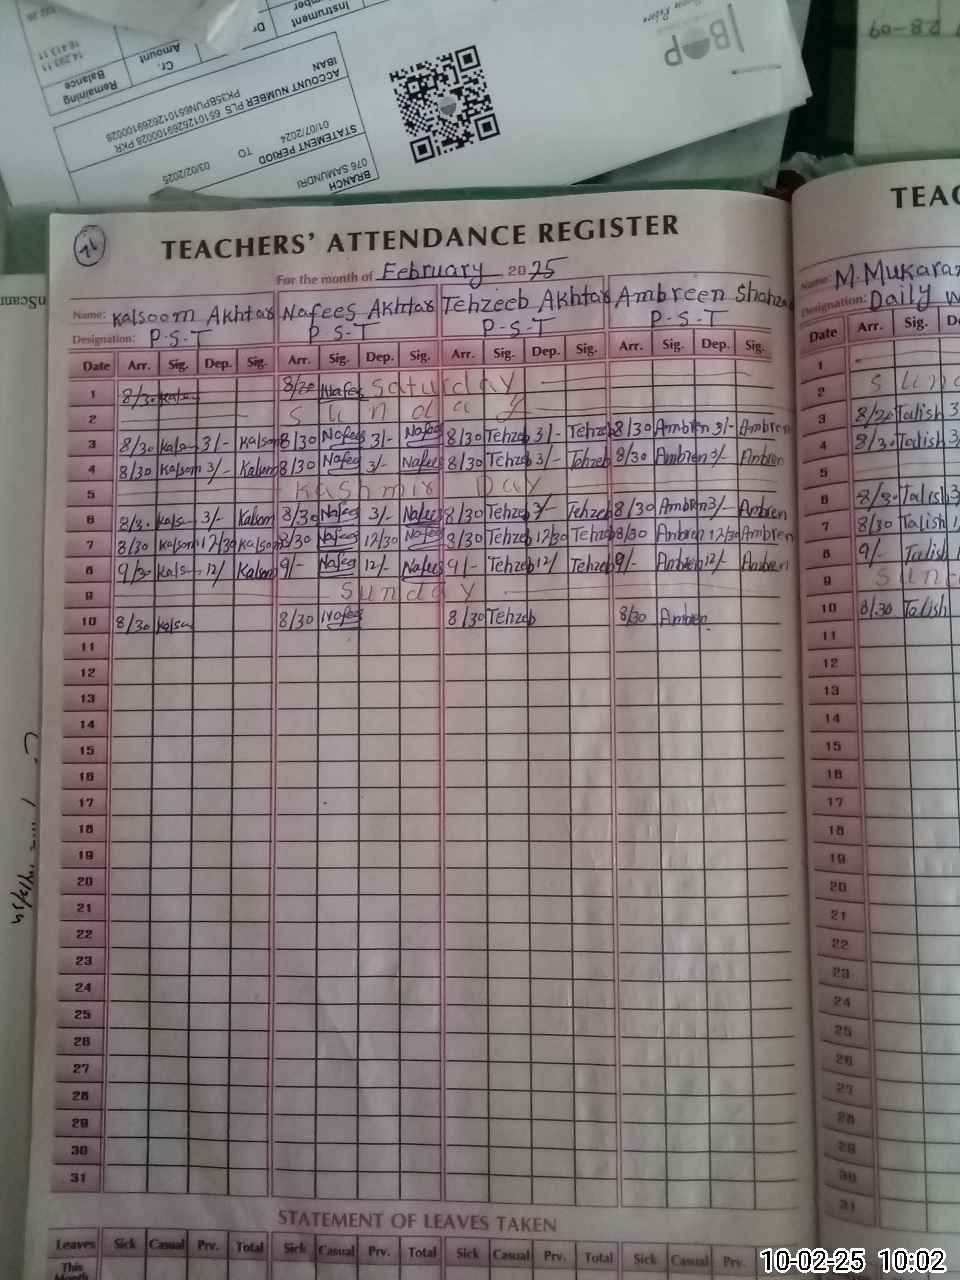 102 26
14,293.11
16,413.11
Balance
Remaining
Amount
Cr.
Dr
Instrument
IBAN
PK35BPUN6510126269100028
ACCOUNT NUMBER PLS 6510126269100028 PKR
STATEMENT PERIOD
01/07/2024 TO 03/02/2025
BRANCH
076 SAMUNDRI
BOP
28-09
76
TEACHERS' ATTENDANCE REGISTER
For the month of February 2025
Name: Kalsoom Akhtar Nafees Akhtar Tehzeeb Akhtar Ambreen Shahza
Designation: P.S.T P.S.T P.S.T P.S.T
Date Arr. Sig. Dep. Sig. Arr. Sig. Dep. Sig. Arr. Sig. Dep. Sig. Arr. Sig. Dep. Sig.
1 8/30 Kals 8/30 Nafees Saturday
2 Sunday
3 8/30 Kalsom 3/- Kalsom 8/30 Nafees 3/- Nafees 8/30 Tehzeb 3/- Tehzeb 8/30 Ambren 3/- Ambren
4 8/30 Kalsom 3/- Kalsom 8/30 Nafees 3/- Nafees 8/30 Tehzeb 3/- Tehzeb 8/30 Ambren 3/- Ambren
5 Kashmir Day
6 8/30 Kals 3/- Kalsom 8/30 Nafees 3/- Nafees 8/30 Tehzeb 3/- Tehzeb 8/30 Ambren 3/- Ambren
7 8/30 Kalsom 12/30 Kalsom 8/30 Nafees 12/30 Nafees 8/30 Tehzeb 12/30 Tehzeb 8/30 Ambren 12/30 Ambren
8 9/30 Kals 12/ Kalsom 9/- Nafees 12/- Nafees 9/- Tehzeb 12/ Tehzeb 9/- Ambren 12/- Ambren
9 Sunday
10 8/30 Kalsom 8/30 Nafees 8/30 Tehzeb 8/30 Ambren
11
12
13
14
15
16
17
18
19
20
21
22
23
24
25
26
27
28
29
30
31
STATEMENT OF LEAVES TAKEN
Leaves Sick Casual Prv. Total Sick Casual Prv. Total Sick Casual Prv. Total Sick Casual Prv.
This
Month
TEAC
Name: M.Mukaraz
Designation: Daily W
Date Arr. Sig. De
1
2 Sund
3 8/30 Talish 3
4 8/30 Talish 3/
5
6 8/30 Talish 3
7 8/30 Talish 1
8 9/- Talish 1
9 Sund
10 8/30 Talish
11
12
13
14
15
16
17
18
19
20
21
22
23
24
25
26
27
28
29
30
31
10-02-25 10:02